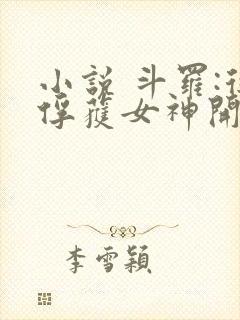 小說 斗羅:
俘獲女神開
李雪穎